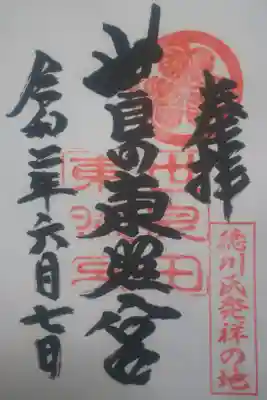 奉拝
徳川氏発祥の地
世良田東照宮
世良田
東照宮
令和二年六月七日